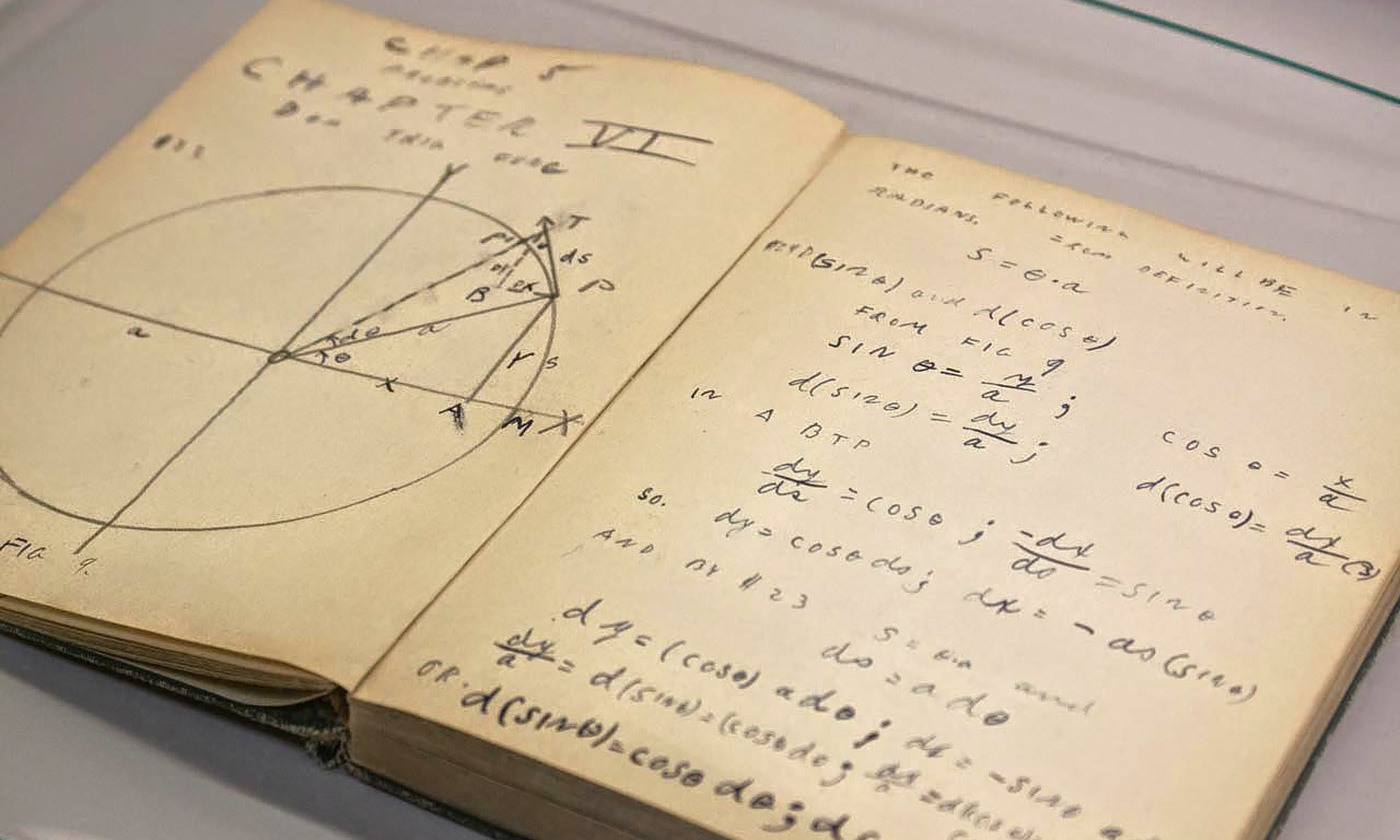 CHAP 5
CHAPTER VI
TRIG FUNC
Y
T
P'
ds
P
B
dx
dθ
a
θ
a
Y
S
X
A
M
X
FIG 9.
THE FOLLOWING WILL BE IN
RADIANS. FROM DEFINITION.
S = θ·a
(SIN θ) and d(COS θ)
FROM FIG 9
SIN θ = y/a ; COS θ = x/a
d(SIN θ) = dy/a ; d(COS θ) = dx/a (3)
IN A BTP
dy/ds = COS θ ; -dx/ds = SIN θ
SO. dy = COS θ ds ; dx = - ds (SIN θ)
AND BY # 23 S = θ.a and
ds = a dθ
dy = (COS θ) a dθ ; dx = - SIN θ a
dy/a = d(SIN θ) = (COS θ dθ ; dx/a =
OR. d(SIN θ) = COS θ dθ ;